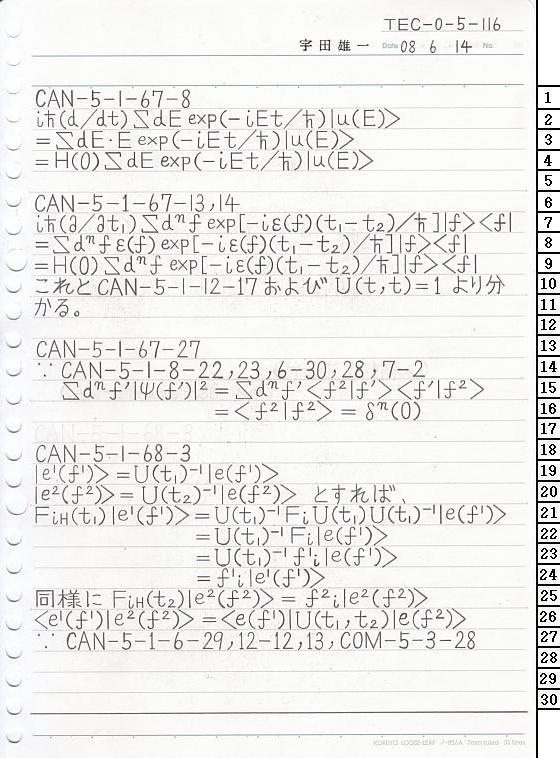 TEC-0-5-116
宇田雄一 Date 08・6・14 No.
CAN-5-1-67-8
iħ(d/dt)∑dE exp(-iEt/ħ)|u(E)>
=∑dE・E exp(-iEt/ħ)|u(E)>
=H(0)∑dE exp(-iEt/ħ)|u(E)>
CAN-5-1-67-13,14
iħ(∂/∂t₁)∑dⁿf exp[-iε(f)(t₁-t₂)/ħ]|f><f|
=∑dⁿf ε(f) exp[-iε(f)(t₁-t₂)/ħ]|f><f|
=H(0)∑dⁿf exp[-iε(f)(t₁-t₂)/ħ]|f><f|
これとCAN-5-1-12-17および U(t,t)=1 より分
かる。
CAN-5-1-67-27
∵ CAN-5-1-8-22,23,6-30,28,7-2
∑dⁿf'|Ψ(f')|² = ∑dⁿf'<f²|f'><f'|f²>
= <f²|f²> = δⁿ(0)
CAN-5-1-68-3
|e¹(f¹)> = U(t₁)⁻¹|e(f¹)>
|e²(f²)> = U(t₂)⁻¹|e(f²)> とすれば、
FiH(t₁)|e¹(f¹)> = U(t₁)⁻¹FiU(t₁)U(t₁)⁻¹|e(f¹)>
= U(t₁)⁻¹Fi|e(f¹)>
= U(t₁)⁻¹f¹i|e(f¹)>
= f¹i|e¹(f¹)>
同様に FiH(t₂)|e²(f²)> = f²i|e²(f²)>
<e¹(f¹)|e²(f²)> = <e(f¹)|U(t₁,t₂)|e(f²)>
∵ CAN-5-1-6-29,12-12,13,COM-5-3-28
KOKUYO LOOSE-LEAF ノ-836A 7mm ruled 31 lines
1
2
3
4
5
6
7
8
9
10
11
12
13
14
15
16
17
18
19
20
21
22
23
24
25
26
27
28
29
30